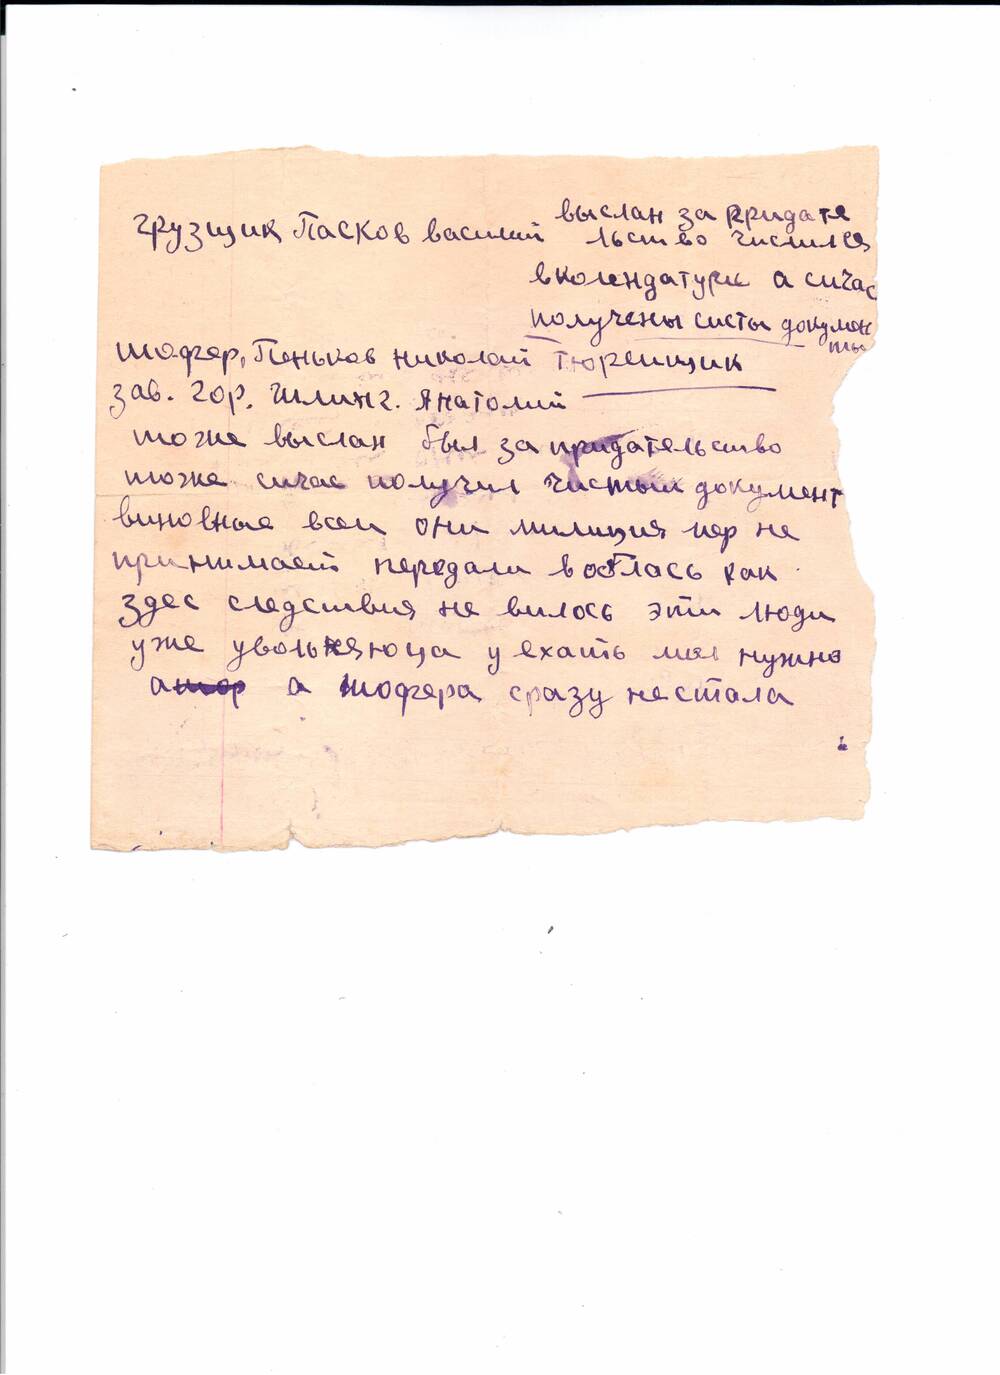 выслан за придате
грузщик Пасков василий льство числился
в колендатуре а сичас
получены систы докумен
ты
шофер, Пеньков николай тюремщик
зав. гор. Шлинг. Анатолий
тоже выслан был за придательство
тоже сичас получил чистый документ
виновные всеи они милиция мер не
принимает передали в область как
здес следствия не вилось эти люди
уже увольняюца уехать мая нужно
а а шофера сразу нестала